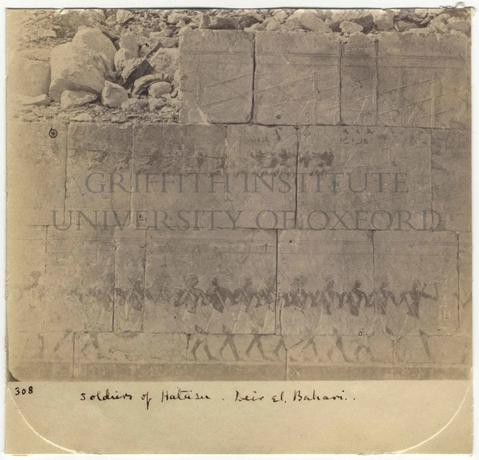 GRIFFITH INSTITUTE
UNIVERSITY OF OXFORD
308
Soldiers of Hatasu. Deir el. Bahari.